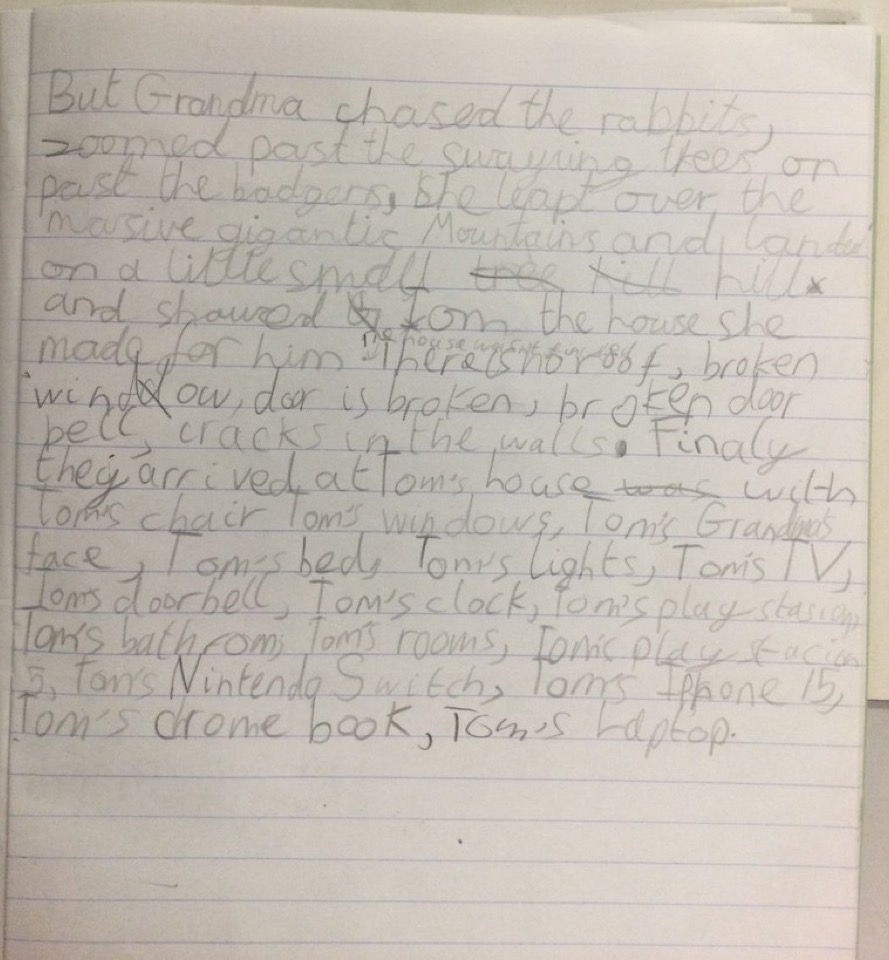 But Grandma chased the rabbits,
zoomed past the swaying trees on
past the badgers, she leapt over the
masive gigantic Mountains and landed
on a little small tree hill hill
and showed Tom the house she
the house wasn't
made for him There is no roof, broken
window, door is broken, broken door
bell, cracks in the walls. Finaly
they arrived at Tom's house was with
Tom's chair Tom's windows, Tom's Grandma's
face, Tom's bed, Tom's lights, Tom's TV,
Tom's doorbell, Tom's clock, Tom's play stasion,
Tom's bathroom, Tom's rooms, Tom's play stacion
5, Tom's Nintendo Switch, Tom's Iphone 15,
Tom's chrome book, Tom's Laptop.